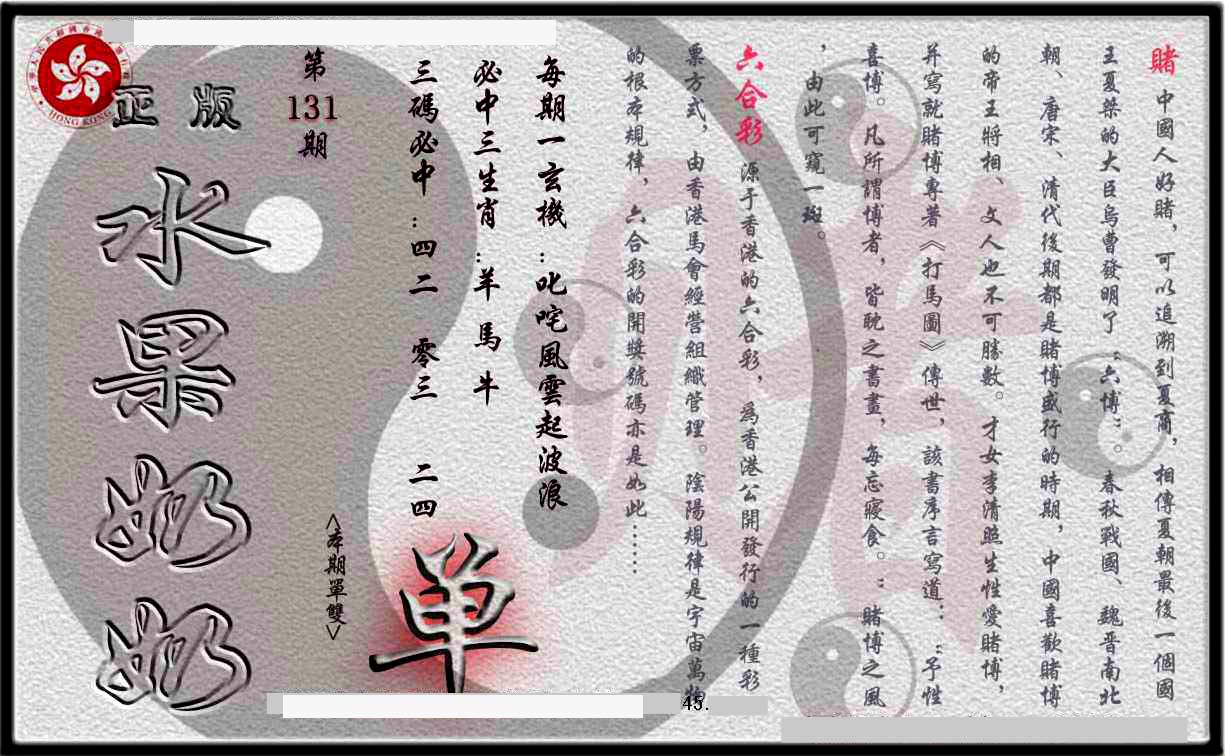 賭 中國人好賭，可以追溯到夏商，相傳夏朝最後一個國
王夏桀的大臣烏曹發明了“六博”。春秋戰國、魏晋南北
朝、唐宋、清代後期都是賭博盛行的時期，中國喜歡賭博
的帝王將相、文人也不可勝數。才女李清照生性愛賭博，
并寫就賭博專著《打馬圖》傳世，該書序言寫道：“予性
喜博。凡所謂博者，皆耽之書畫，每忘寢食。”賭博之風
，由此可窺一斑。
六合彩 源于香港的六合彩，為香港公開發行的一種彩
票方式，由香港馬會經營組織管理。陰陽規律是宇宙萬物
的根本規律，六合彩的開獎號碼亦是如此……
每期一玄機：叱咤風雲起波浪
必中三生肖：羊 馬 牛
三碼必中：四二 零三 二四
單
<本期單雙>
第
131
期
正版
水果奶奶
HONG KONG
45.